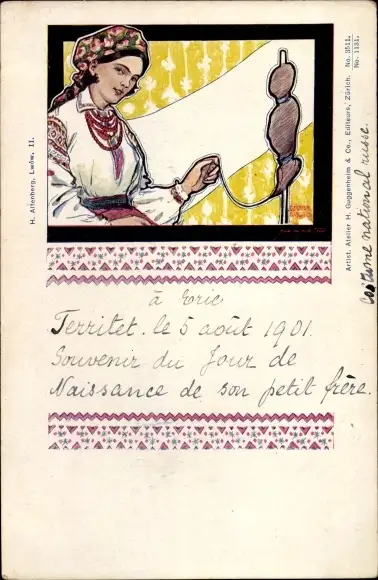 H. Altenberg, Lwów. II.
Artist. Atelier H. Guggenheim & Co., Editeurs, Zürich. No. 3511.
No. 1131.
Costume national russe.
à Eric
Territet. le 5 août 1901.
Souvenir du Jour de
Naissance de son petit frère.